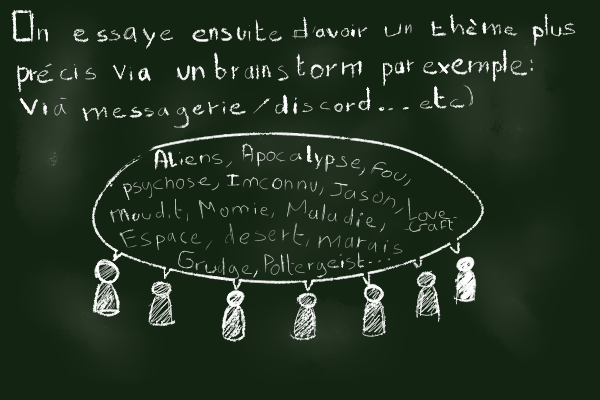 On essaye ensuite d'avoir un thème plus
précis via un brainstorm par exemple:
Vià messagerie/discord... etc)
Aliens, Apocalypse, Fou,
psychose, Imconnu, Jason,
maudit, Momie, Maladie, Love-
Craft
Espace, desert, marais
Grudge, Poltergeist...